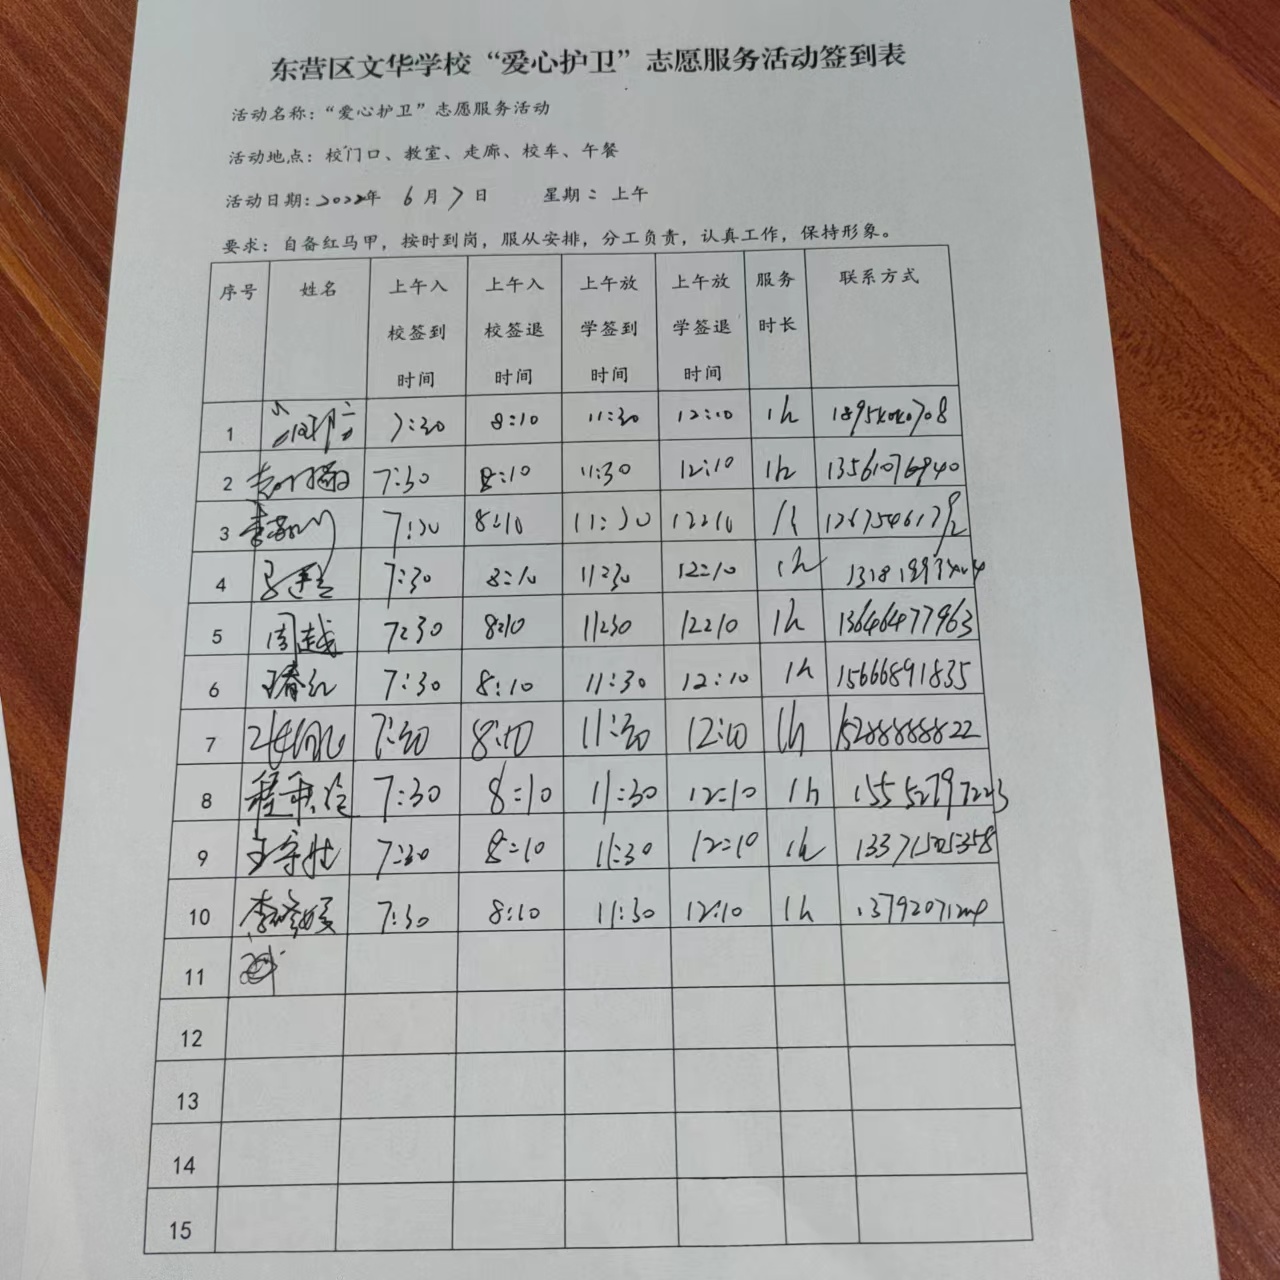 东营区文华学校“爱心护卫”志愿服务活动签到表
活动名称：“爱心护卫”志愿服务活动
活动地点：校门口、教室、走廊、校车、午餐
活动日期：2022年 6月7日 星期二 上午
要求：自备红马甲，按时到岗，服从安排，分工负责，认真工作，保持形象。
序号 姓名 上午入校签到时间 上午入校签退时间 上午放学签到时间 上午放学签退时间 服务时长 联系方式
1 7:30 8:10 11:30 12:10 1h
2 7:30 8:10 11:30 12:10 1h 13561076940
3 7:30 8:10 11:30 12:10 1h
4 7:30 8:10 11:30 12:10 1h
5 周越 7:30 8:10 11:30 12:10 1h 13646477963
6 7:30 8:10 11:30 12:10 1h 15666891835
7 7:30 8:10 11:30 12:10 1h 15288888822
8 7:30 8:10 11:30 12:10 1h 15552797223
9 7:30 8:10 11:30 12:10 1h
10 7:30 8:10 11:30 12:10 1h
11
12
13
14
15